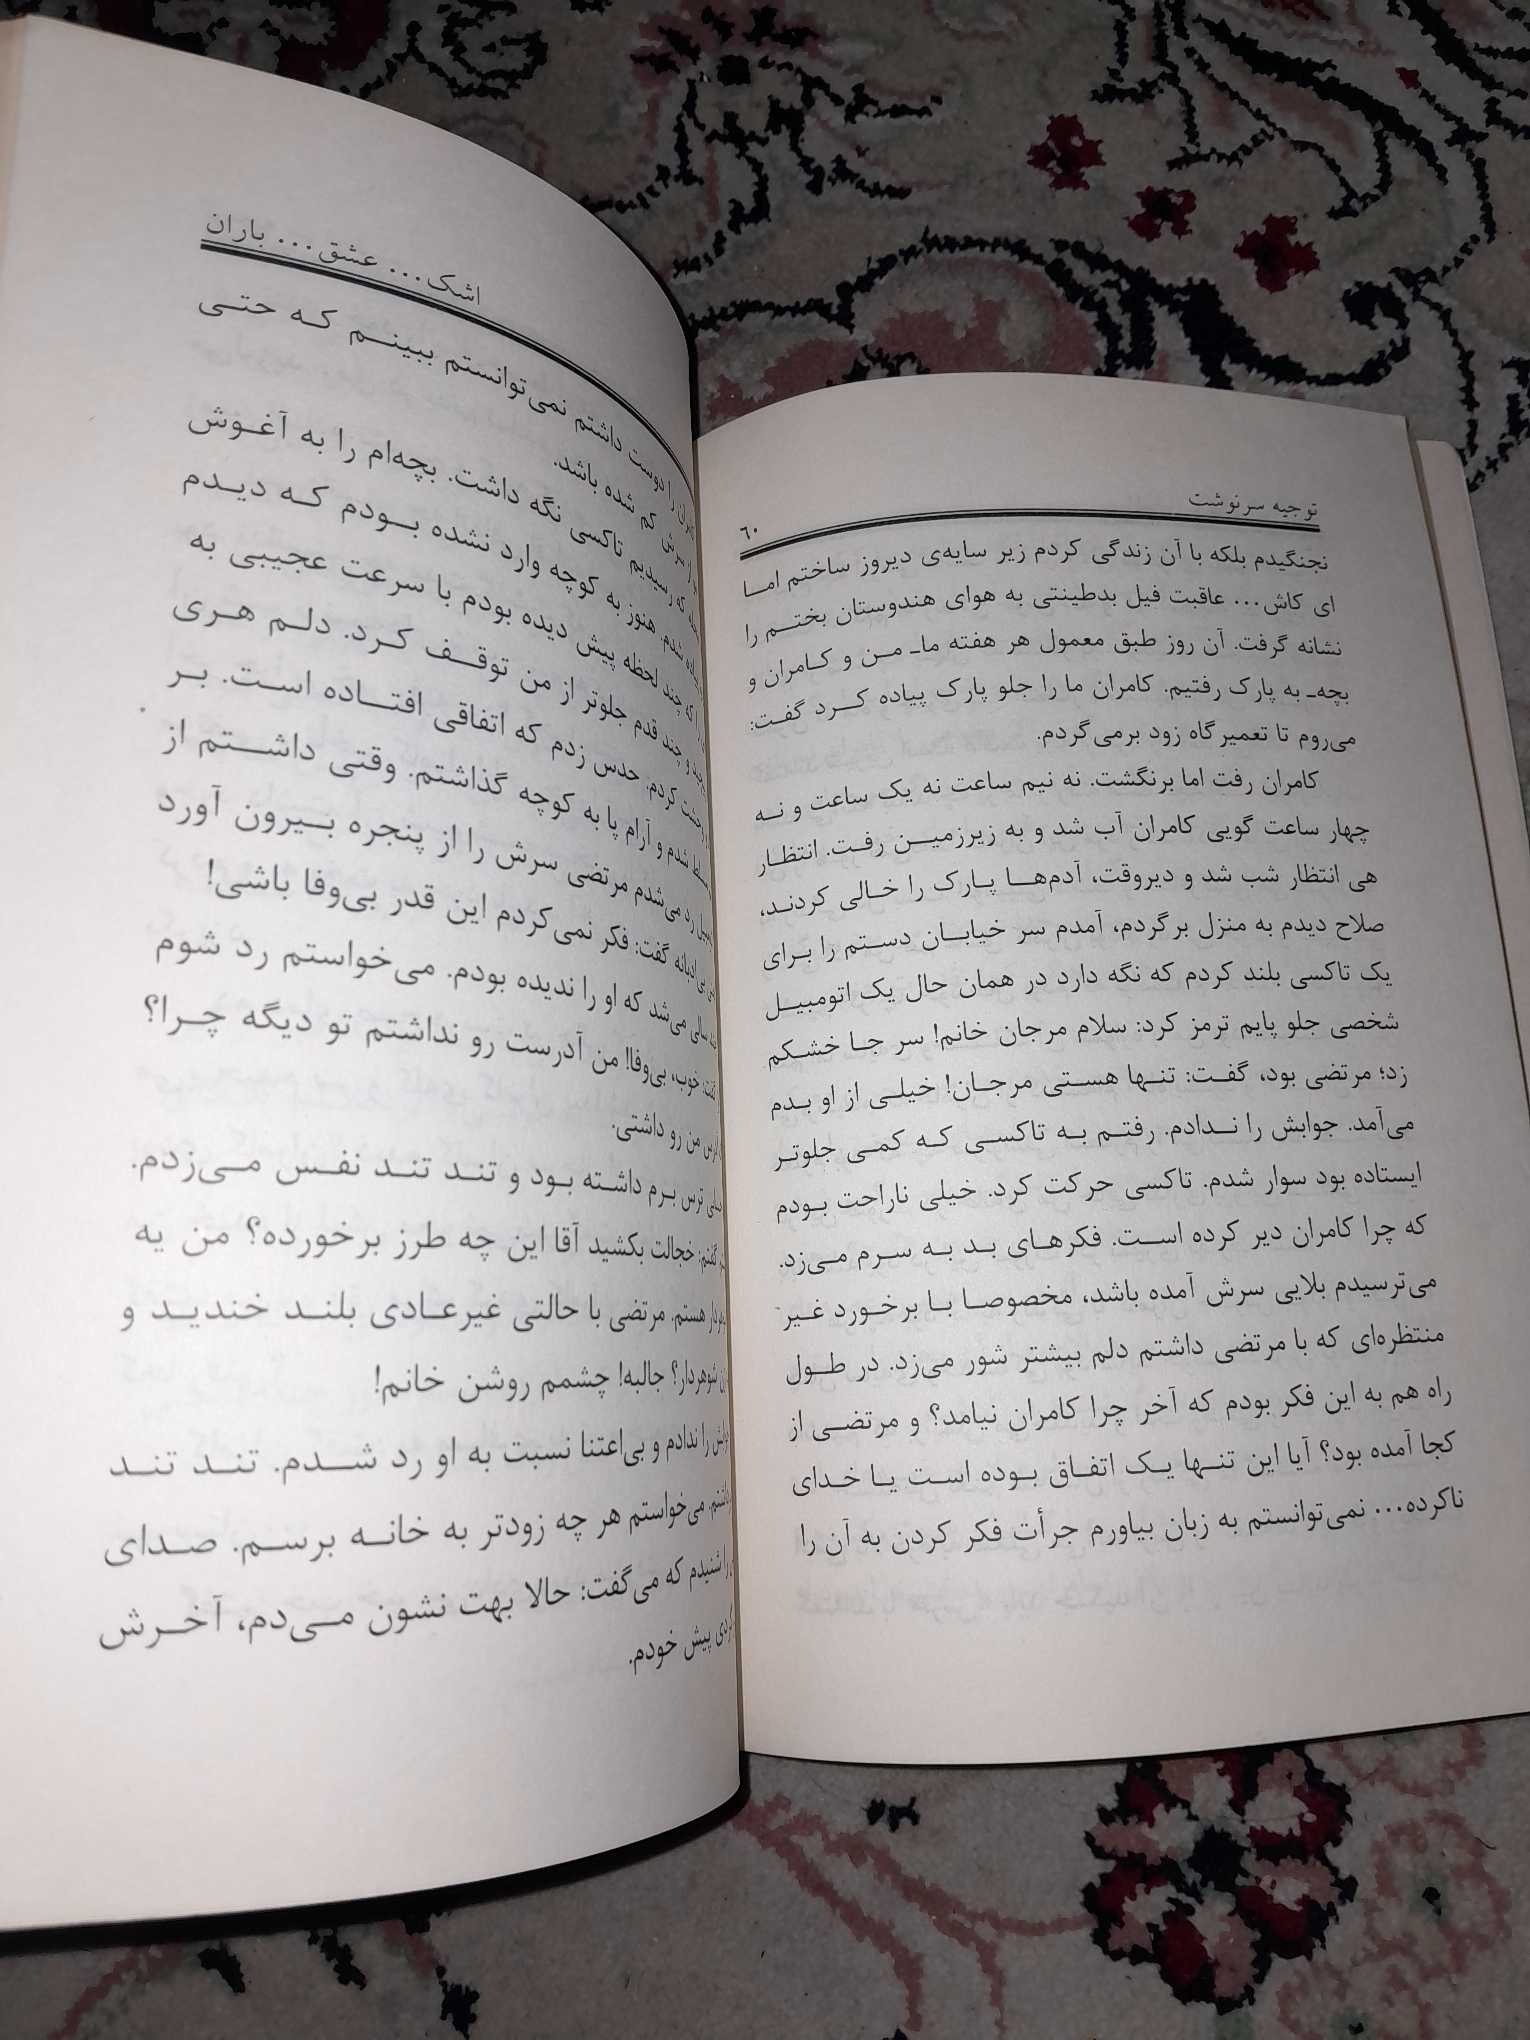 توجیه سرنوشت
۶۰
نجنگیدم بلکه با آن زندگی کردم زیر سایه‌ی دیروز ساختم امـا
ای کاش... عاقبت فیل بدطینتی به هوای هندوستان بختـم را
نشانه گرفت. آن روز طبق معمول هر هفته ماـ مـن و کـامران و
بچه‌ـ به پارک رفتیم. کامران ما را جلو پارک پیاده کـرد گفت:
می‌روم تا تعمیرگاه زود برمی‌گردم.
کامران رفت اما برنگشت. نه نیم ساعت نه یک ساعت و نـه
چهار ساعت گویی کامران آب شد و به زیرزمیـن رفـت. انتظـار
هی انتظار شب شد و دیروقت، آدم‌هـا پـارک را خـالی کردنـد،
صلاح دیدم به منزل برگردم، آمدم سر خیابـان دسـتم را بـرای
یک تاکسی بلند کردم که نگه دارد در همان حال یک اتومبیـل
شخصی جلو پایم ترمز کرد: سلام مرجان خانم! سر جـا خشـکم
زد؛ مرتضی بود، گفـت: تـنهـا هسـتی مرجـان! خیلـی از او بـدم
می‌آمد. جوابش را نـدادم. رفتـم بـه تاکسـی کـه کمـی جلوتـر
ایستاده بود سوار شدم. تاکسی حرکت کرد. خیلی ناراحت بـودم
که چرا کامران دیر کرده اسـت. فکرهـای بـد بـه سـرم مـی‌زد.
می‌ترسیدم بلایی سرش آمده باشد، مخصوصـا بـا برخـورد غـیر
منتظره‌ای که با مرتضی داشتم دلم بیشتر شور می‌زد. در طـول
راه هم به این فکر بودم که آخر چرا کامران نیامد؟ و مرتضـی از
کجا آمده بود؟ آیا این تنـهـا یـک اتفـاق بـوده اسـت یـا خـدای
ناکرده... نمی‌توانستم به زبان بیاورم جرأت فکر کردن به آن را
اشک... عشق... باران
را دوست داشتم نمی‌توانستم ببینـم کـه حتـی
سرش کم شده باشد.
که رسیدیم تاکسی نگه داشت. بچه‌ام را به آغـوش
شدم. هنوز به کوچه وارد نشده بـودم کـه دیـدم
را که چند لحظه پیش دیده بودم با سرعت عجیبی به
و چند قدم جلوتر از من توقـف کـرد. دلـم هـری
کردم. حدس زدم که اتفاقی افتـاده اسـت. بـر
شدم و آرام پا به کوچه گذاشتم. وقتی داشـتم از
رد می‌شدم مرتضی سرش را از پنجره بـیرون آورد
بی‌ادبانه گفت: فکر نمی‌کردم این قدر بی‌وفا باشی!
سالی می‌شد که او را ندیده بودم. می‌خواستم رد شوم
گفت: خوب، بی‌وفا! من آدرست رو نداشتم تو دیگه چـرا؟
من رو داشتی.
ترس برم داشته بـود و تنـد تند نفـس مـی‌زدم.
گفتم: خجالت بکشید آقا این چه طرز برخورده؟ من یه
هستم. مرتضی با حالتی غیرعـادی بلنـد خندیـد و
شوهردار؟ جالبه! چشمم روشن خانم!
را ندادم و بی‌اعتنا نسبت به او رد شـدم. تنـد تند
می‌خواستم هر چه زودتر به خانـه برسـم. صـدای
را شنیدم که می‌گفت: حالا بهت نشون مـی‌دم، آخـرش
پیش خودم.